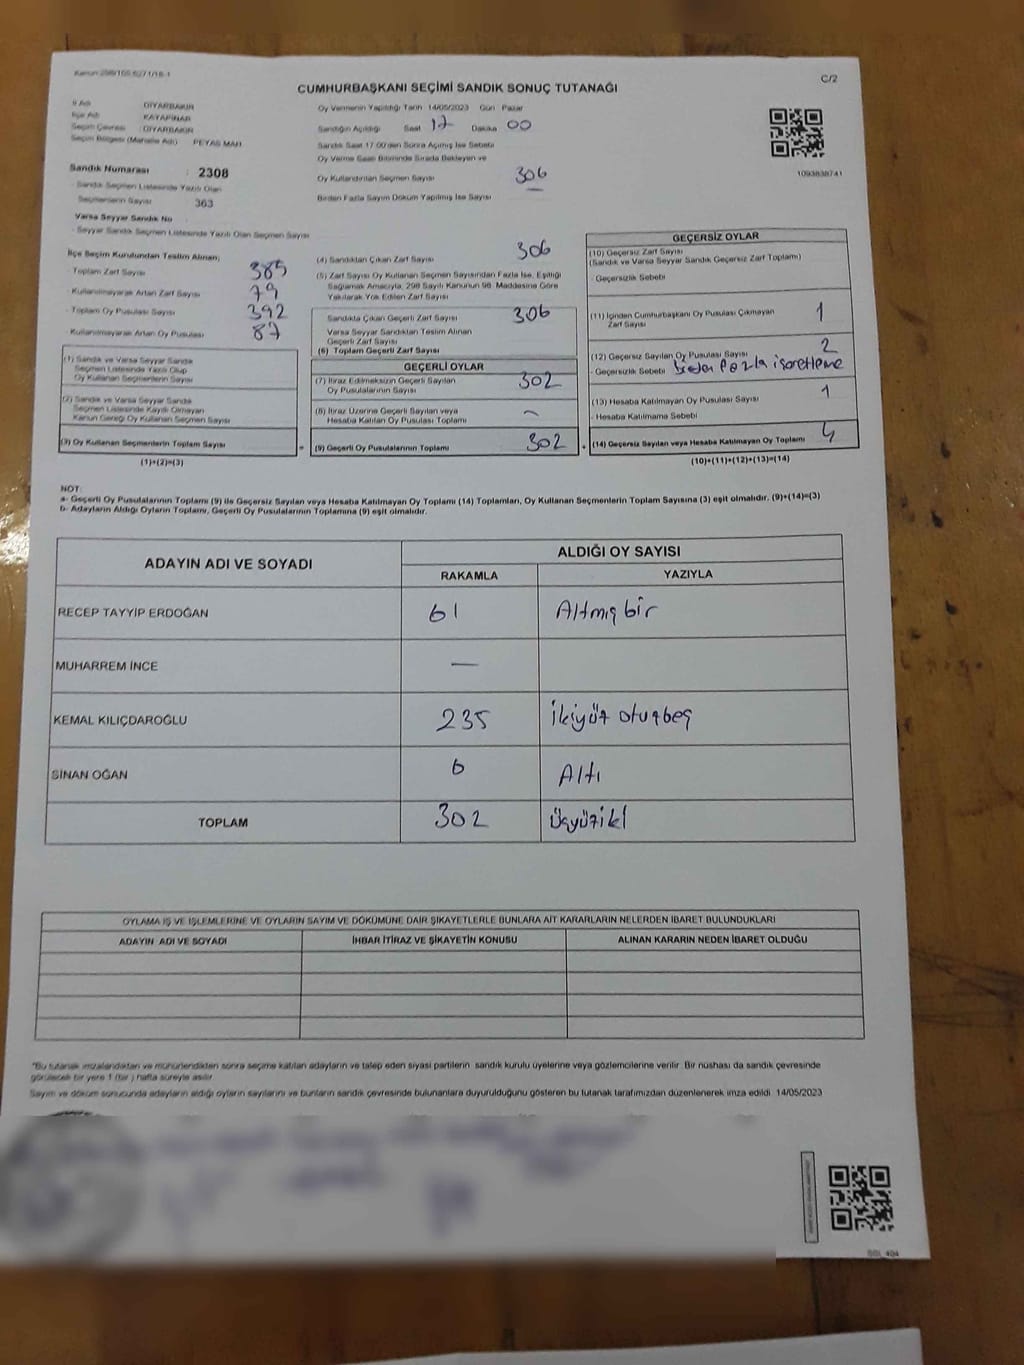 Kanun:298/105,6271/18-1
C/2
CUMHURBAŞKANI SEÇİMİ SANDIK SONUÇ TUTANAĞI
İl Adı : DİYARBAKIR
İlçe Adı : KAYAPINAR
Seçim Çevresi : DİYARBAKIR
Seçim Bölgesi (Mahalle Adı) : PEYAS MAH.
Sandık Numarası : 2308
- Sandık Seçmen Listesinde Yazılı Olan
Seçmenlerin Sayısı : 363
Varsa Seyyar Sandık No
- Seyyar Sandık Seçmen Listesinde Yazılı Olan Seçmen Sayısı
Oy Vermenin Yapıldığı Tarih 14/05/2023 Gün Pazar
Sandığın Açıldığı Saat 17 Dakika 00
Sandık Saat 17:00'den Sonra Açılmış İse Sebebi
Oy Verme Saati Bitiminde Sırada Bekleyen ve
Oy Kullandırılan Seçmen Sayısı 306
Birden Fazla Sayım Döküm Yapılmış İse Sayısı —
1093838741
İlçe Seçim Kurulundan Teslim Alınan;
- Toplam Zarf Sayısı 385
- Kullanılmayarak Artan Zarf Sayısı 79
- Toplam Oy Pusulası Sayısı 392
- Kullanılmayarak Artan Oy Pusulası 87
(1) Sandık ve Varsa Seyyar Sandık
Seçmen Listesinde Yazılı Olup
Oy Kullanan Seçmenlerin Sayısı
(2) Sandık ve Varsa Seyyar Sandık
Seçmen Listesinde Kayıtlı Olmayan
Kanun Gereği Oy Kullanan Seçmen Sayısı
(3) Oy Kullanan Seçmenlerin Toplam Sayısı =
(1)+(2)=(3)
(4) Sandıktan Çıkan Zarf Sayısı 306
(5) Zarf Sayısı Oy Kullanan Seçmen Sayısından Fazla İse, Eşitliği
Sağlamak Amacıyla, 298 Sayılı Kanunun 98. Maddesine Göre
Yakılarak Yok Edilen Zarf Sayısı
Sandıkta Çıkan Geçerli Zarf Sayısı 306
Varsa Seyyar Sandıktan Teslim Alınan
Geçerli Zarf Sayısı
(6) Toplam Geçerli Zarf Sayısı
GEÇERLİ OYLAR
(7) İtiraz Edilmeksizin Geçerli Sayılan
Oy Pusulalarının Sayısı 302
(8) İtiraz Üzerine Geçerli Sayılan veya
Hesaba Katılan Oy Pusulası Toplamı —
(9) Geçerli Oy Pusulalarının Toplamı 302 +
GEÇERSİZ OYLAR
(10) Geçersiz Zarf Sayısı
(Sandık ve Varsa Seyyar Sandık Geçersiz Zarf Toplamı)
- Geçersizlik Sebebi
(11) İçinden Cumhurbaşkanı Oy Pusulası Çıkmayan
Zarf Sayısı 1
(12) Geçersiz Sayılan Oy Pusulası Sayısı 2
- Geçersizlik Sebebi Birden fazla işaretleme
(13) Hesaba Katılmayan Oy Pusulası Sayısı 1
- Hesaba Katılmama Sebebi
(14) Geçersiz Sayılan veya Hesaba Katılmayan Oy Toplamı 4
(10)+(11)+(12)+(13)=(14)
NOT:
a- Geçerli Oy Pusulalarının Toplamı (9) ile Geçersiz Sayılan veya Hesaba Katılmayan Oy Toplamı (14) Toplamları, Oy Kullanan Seçmenlerin Toplam Sayısına (3) eşit olmalıdır. (9)+(14)=(3)
b- Adayların Aldığı Oyların Toplamı, Geçerli Oy Pusulalarının Toplamına (9) eşit olmalıdır.
ADAYIN ADI VE SOYADI
ALDIĞI OY SAYISI
RAKAMLA YAZIYLA
RECEP TAYYİP ERDOĞAN 61 Altmışbir
MUHARREM İNCE —
KEMAL KILIÇDAROĞLU 235 İkiyüz otuzbeş
SİNAN OĞAN 6 Altı
TOPLAM 302 Üçyüziki
OYLAMA İŞ VE İŞLEMLERİNE VE OYLARIN SAYIM VE DÖKÜMÜNE DAİR ŞİKAYETLERLE BUNLARA AİT KARARLARIN NELERDEN İBARET BULUNDUKLARI
ADAYIN ADI VE SOYADI İHBAR İTİRAZ VE ŞİKAYETİN KONUSU ALINAN KARARIN NEDEN İBARET OLDUĞU
"Bu tutanak imzalandıktan ve mühürlendikten sonra seçime katılan adayların ve talep eden siyasi partilerin sandık kurulu üyelerine veya gözlemcilerine verilir. Bir nüshası da sandık çevresinde
görülecek bir yere 1 (bir ) hafta süreyle asılır.
Sayım ve döküm sonucunda adayların aldığı oyların sayılarını ve bunların sandık çevresinde bulunanlara duyurulduğunu gösteren bu tutanak tarafımızdan düzenlenerek imza edildi. 14/05/2023